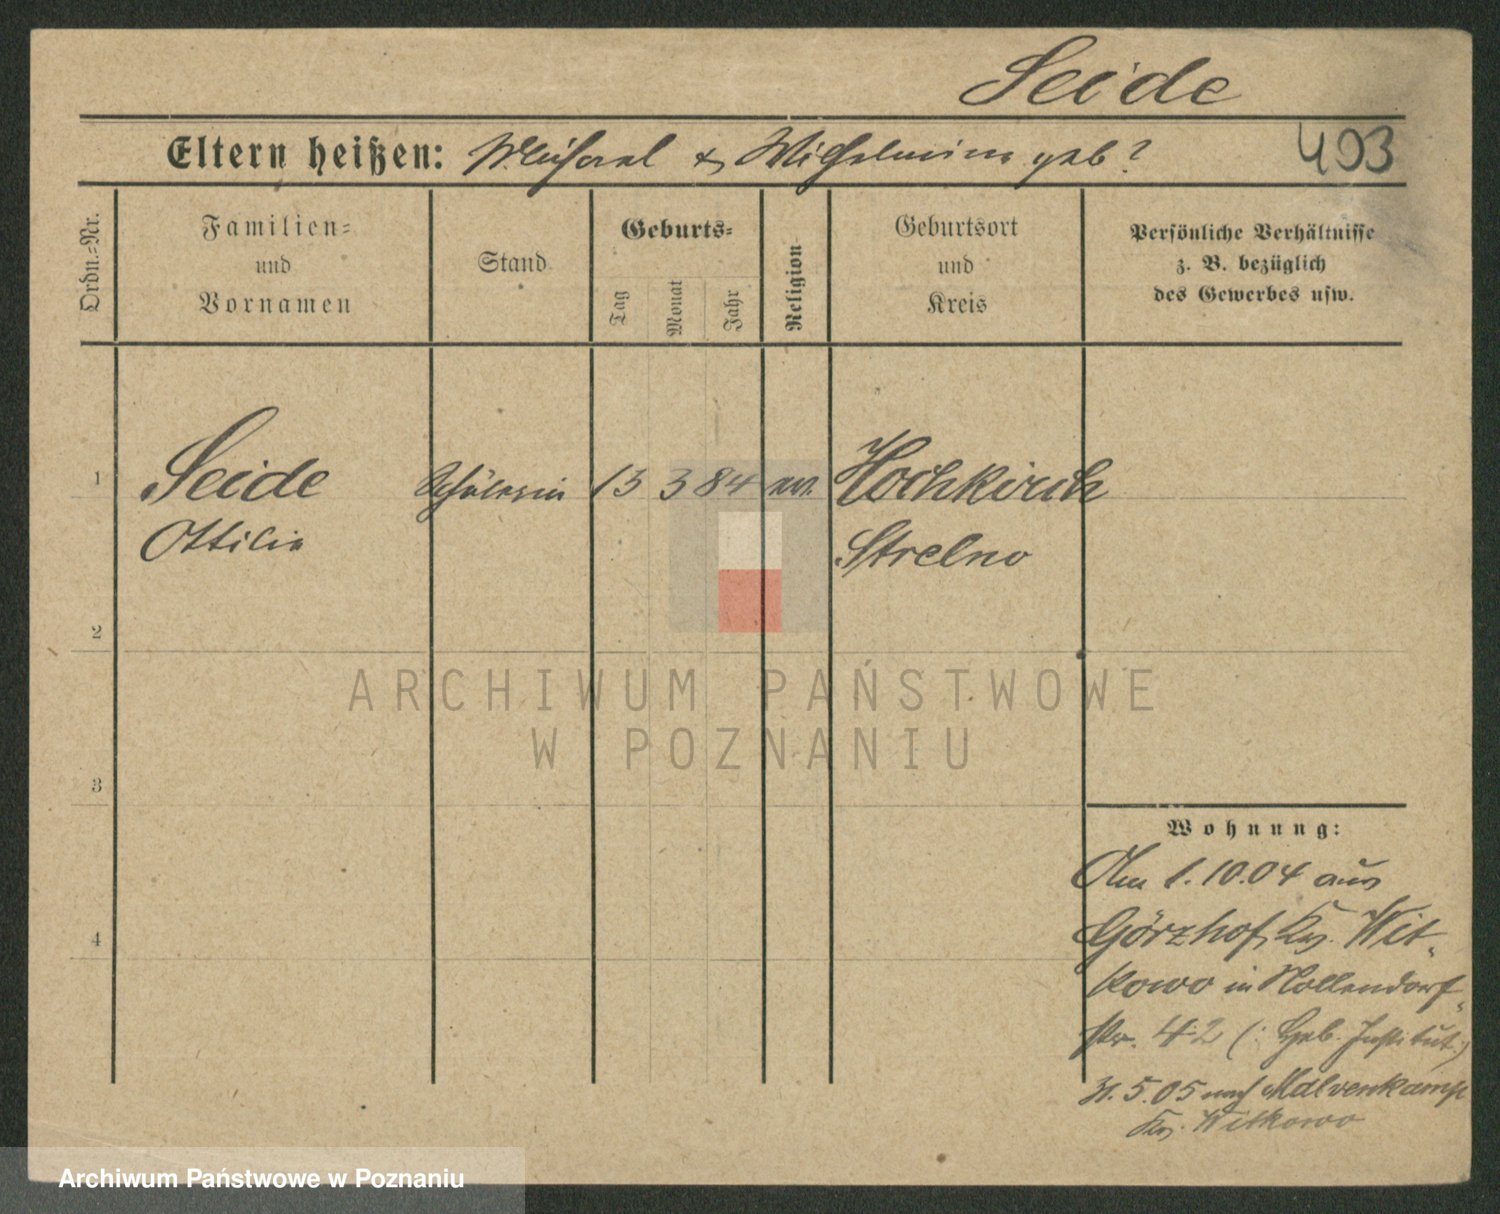 Seide
Eltern heißen: Michael & Wilhelmine geb?
493
Ordn.-Nr.
Familien-
und
Vornamen
Stand
Geburts-
Tag
Monat
Jahr
Religion
Geburtsort
und
Kreis
Persönliche Verhältnisse
z. B. bezüglich
des Gewerbes usw.
1
Seide Schülerin 13 3 84 ev. Hochkirch
Ottilie Strelno
2
ARCHIWUM PAŃSTWOWE
W POZNANIU
3
Wohnung:
Am 1.10.04 aus
Görzhof, Krs. Wit-
4
kowo in Nollendorf-
str. 42 (: Heb. Institut:)
31.5.05 nach Malvenkamp
Krs. Witkowo
Archiwum Państwowe w Poznaniu